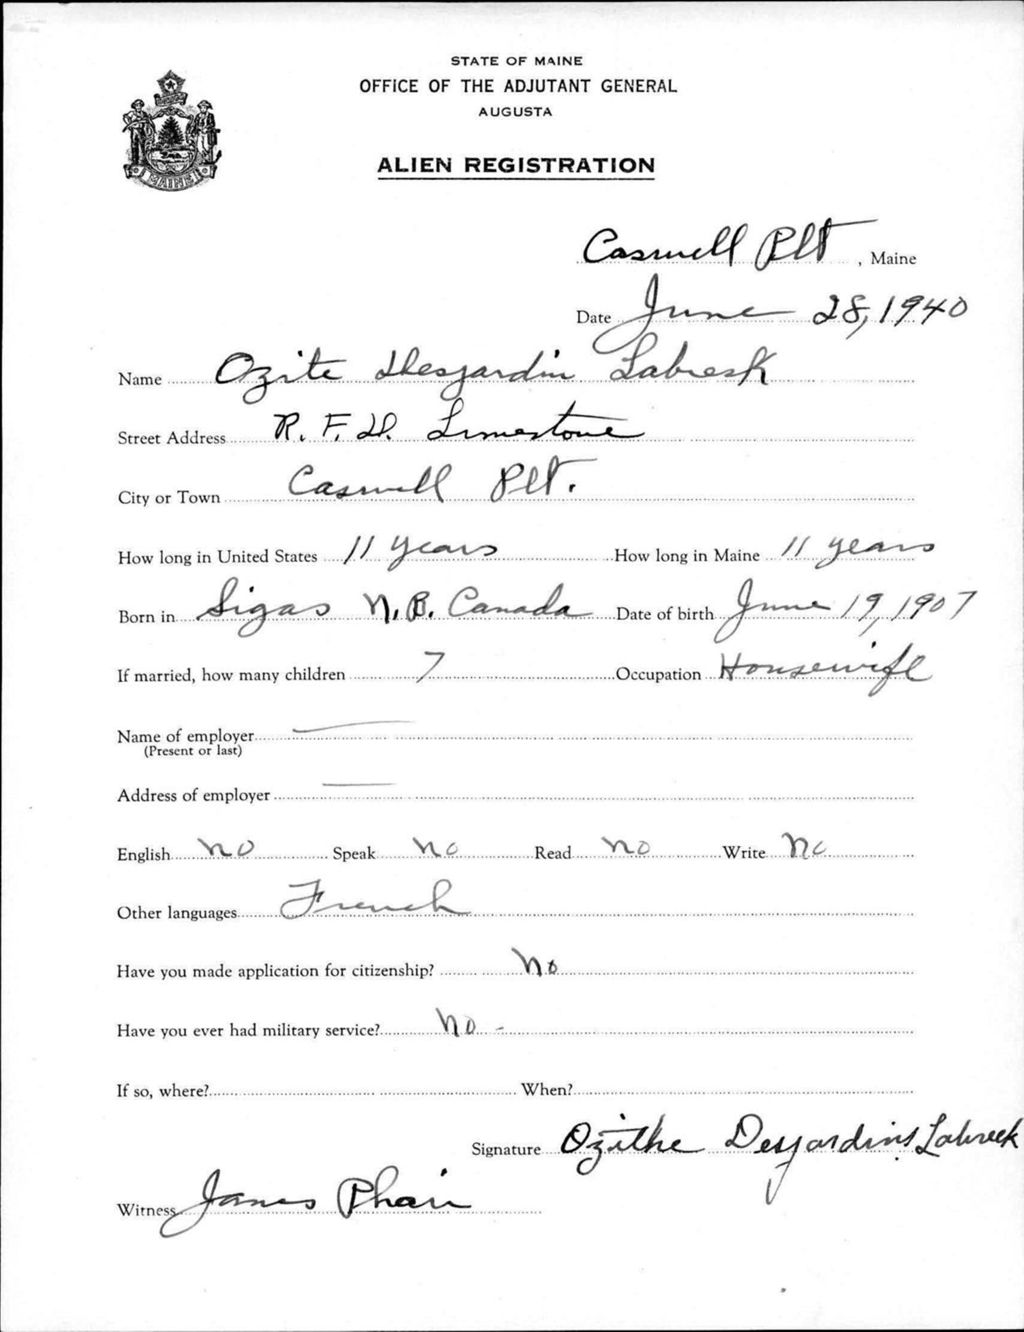 STATE OF MAINE
OFFICE OF THE ADJUTANT GENERAL
AUGUSTA
MAINE
ALIEN REGISTRATION
Caswell Plt, Maine
Date June 28, 1940
Name Ozite Desjardin Labresk
Street Address R. F. D. Limestone
City or Town Caswell Plt.
How long in United States 11 years How long in Maine 11 years
Born in Sigas N.B. Canada Date of birth June 19, 1907
If married, how many children 7 Occupation Housewife
Name of employer —
(Present or last)
Address of employer —
English No Speak No Read No Write No
Other languages French
Have you made application for citizenship? No
Have you ever had military service? No -
If so, where? When?
Signature Ozithe Desjardins Labreek
Witness James Phair